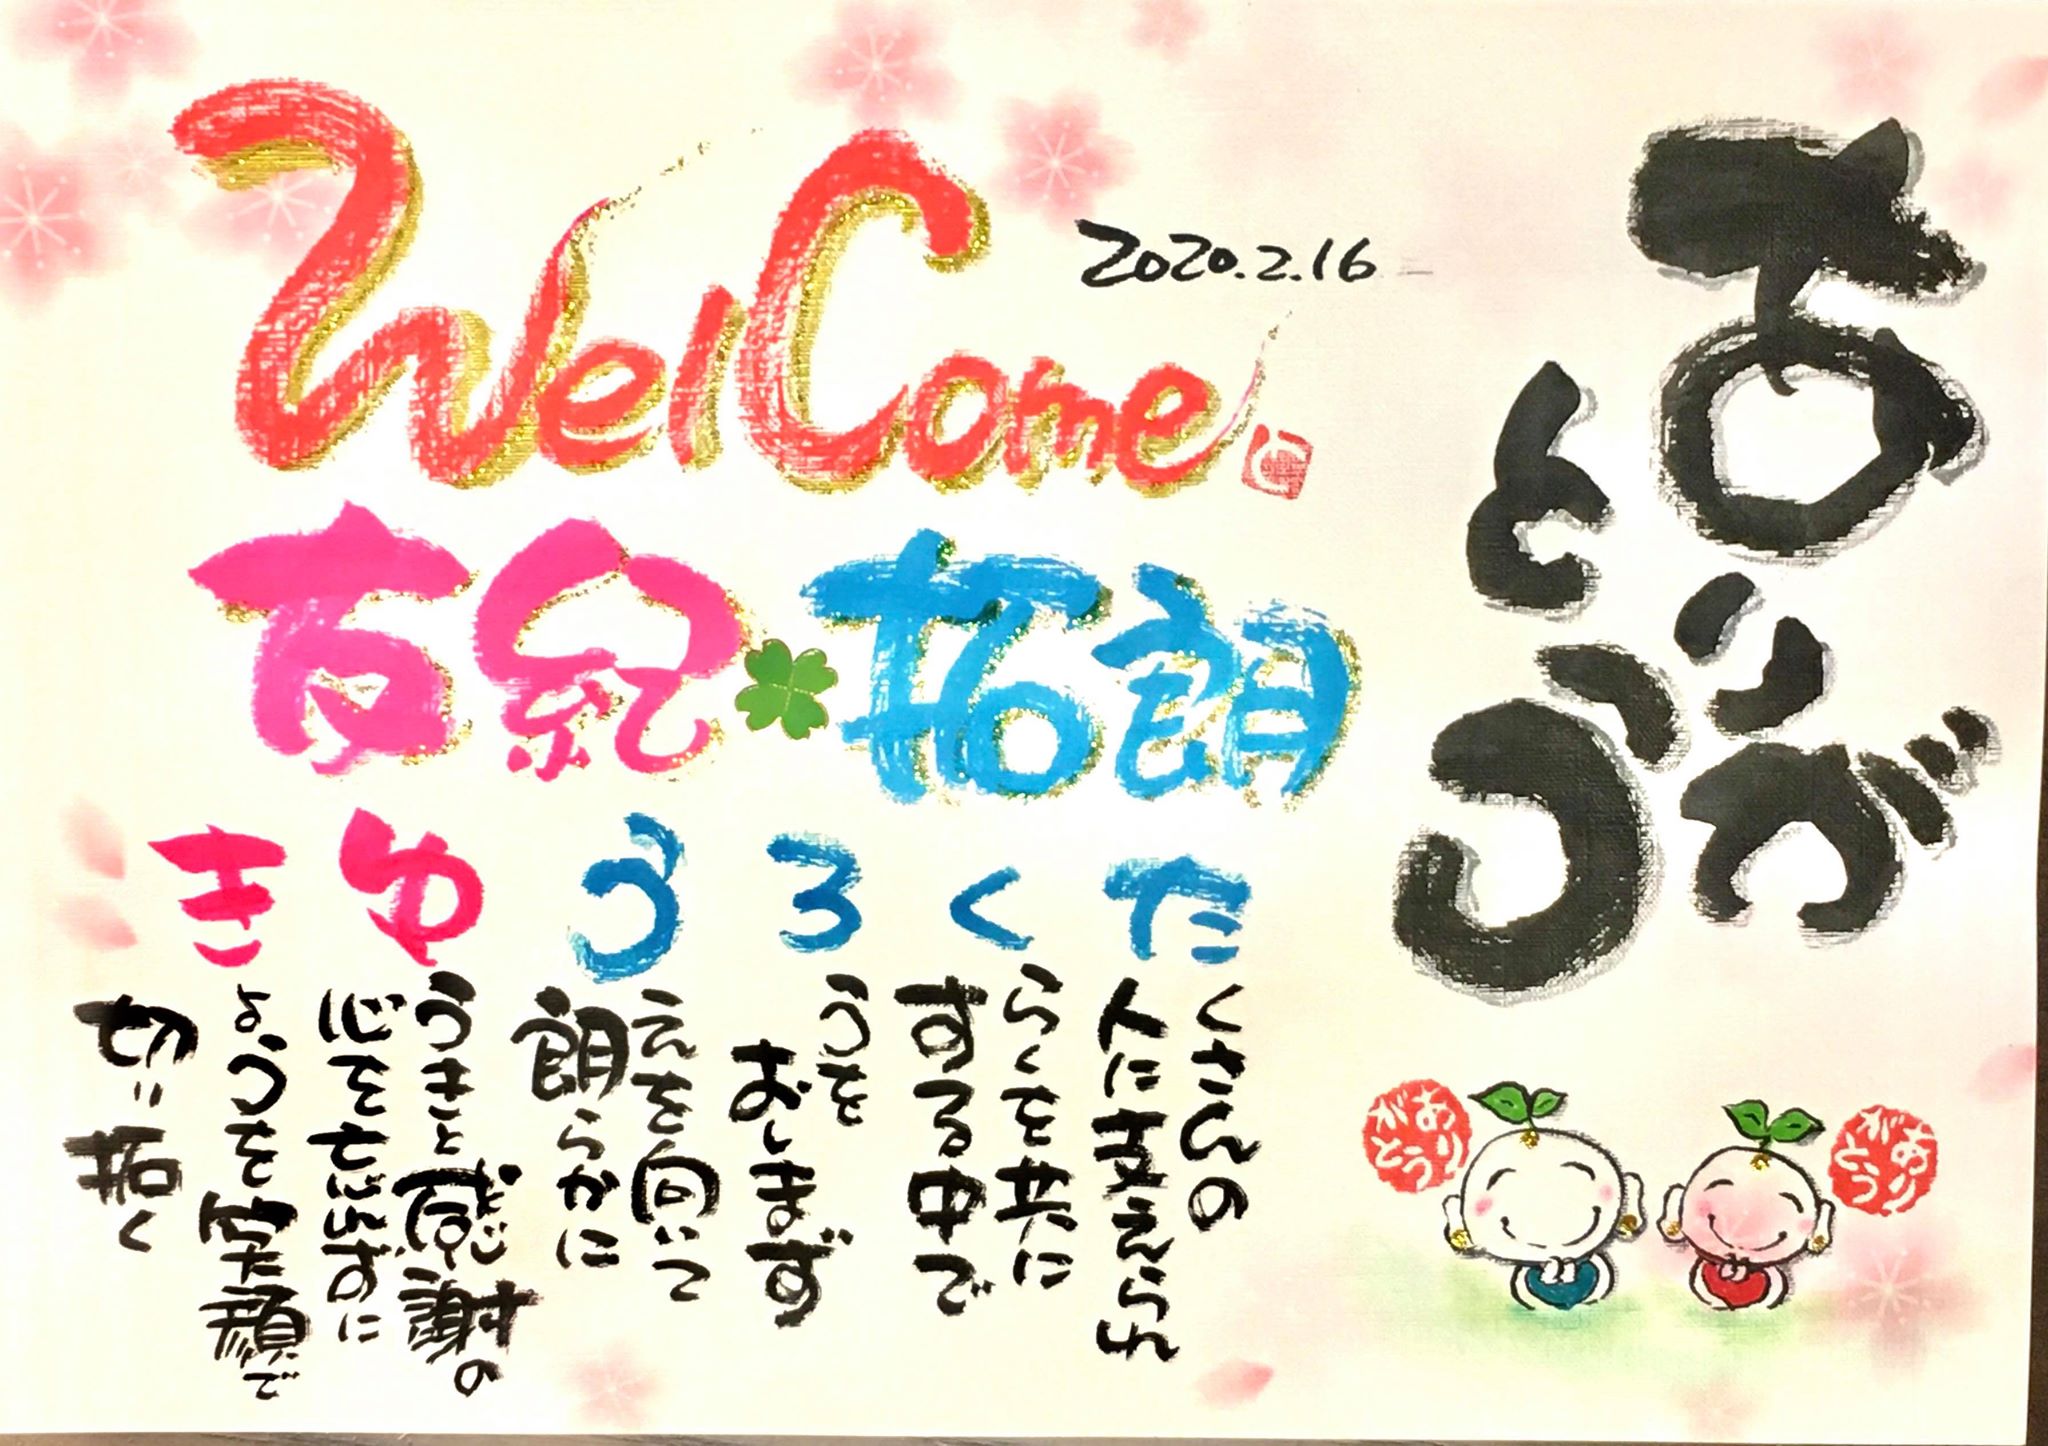 Welcome
2020.2.16
友紀
拓朗
ありがとう
たくさんの
人に支えられ
くらくを共に
する中で
ろうを
おしまず
うえを向いて
朗らかに
ゆうきと感謝の
心を忘れずに
きようを笑顔で
切り拓く
ありがとう
ありがとう